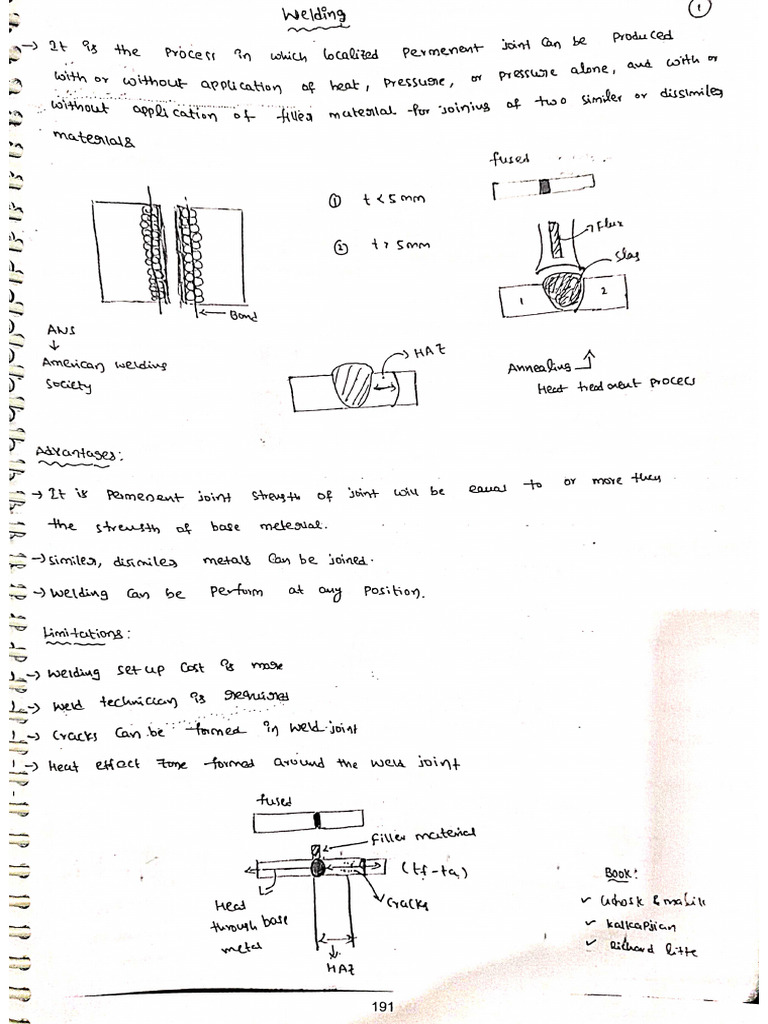 Welding
1
→ It is the process in which localized permenent joint can be produced
with or without application of heat, pressure, or pressure alone, and with or
without application of filler material for joining of two similer or dissimiler
materials
fused
① t < 5mm
② t > 5mm
Flux
Slag
1
2
Bond
AWS
↓
American welding
society
HAZ
Annealing
Heat treatment process
Advantages:
→ It is permenent joint strength of joint will be equal to or more then
the strength of base meterial.
→ similer, disimiler metals can be joined.
→ welding can be perform at any position.
Limitations:
→ welding set up cost is more
→ weld technician is required
→ cracks can be formed in weld joint
→ Heat effect zone formed around the weld joint
fused
filler material
(tf-ta)
Heat
through base
metal
cracks
HAZ
Book:
✓ Ghosh & mallik
✓ kalkapjian
✓ Richard little
191